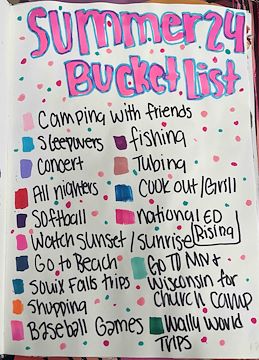 Summer 24
Bucket List
Camping with friends
Sleepovers
fishing
Concert
Tubing
All nighters
Cook out/Grill
Softball
National ED
Rising
Watch Sunset/Sunrise
Go to Beach
Go TO MN +
Wisconsin for
Church Camp
Souix Falls trips
Shopping
Baseball Games
Wally World
Trips